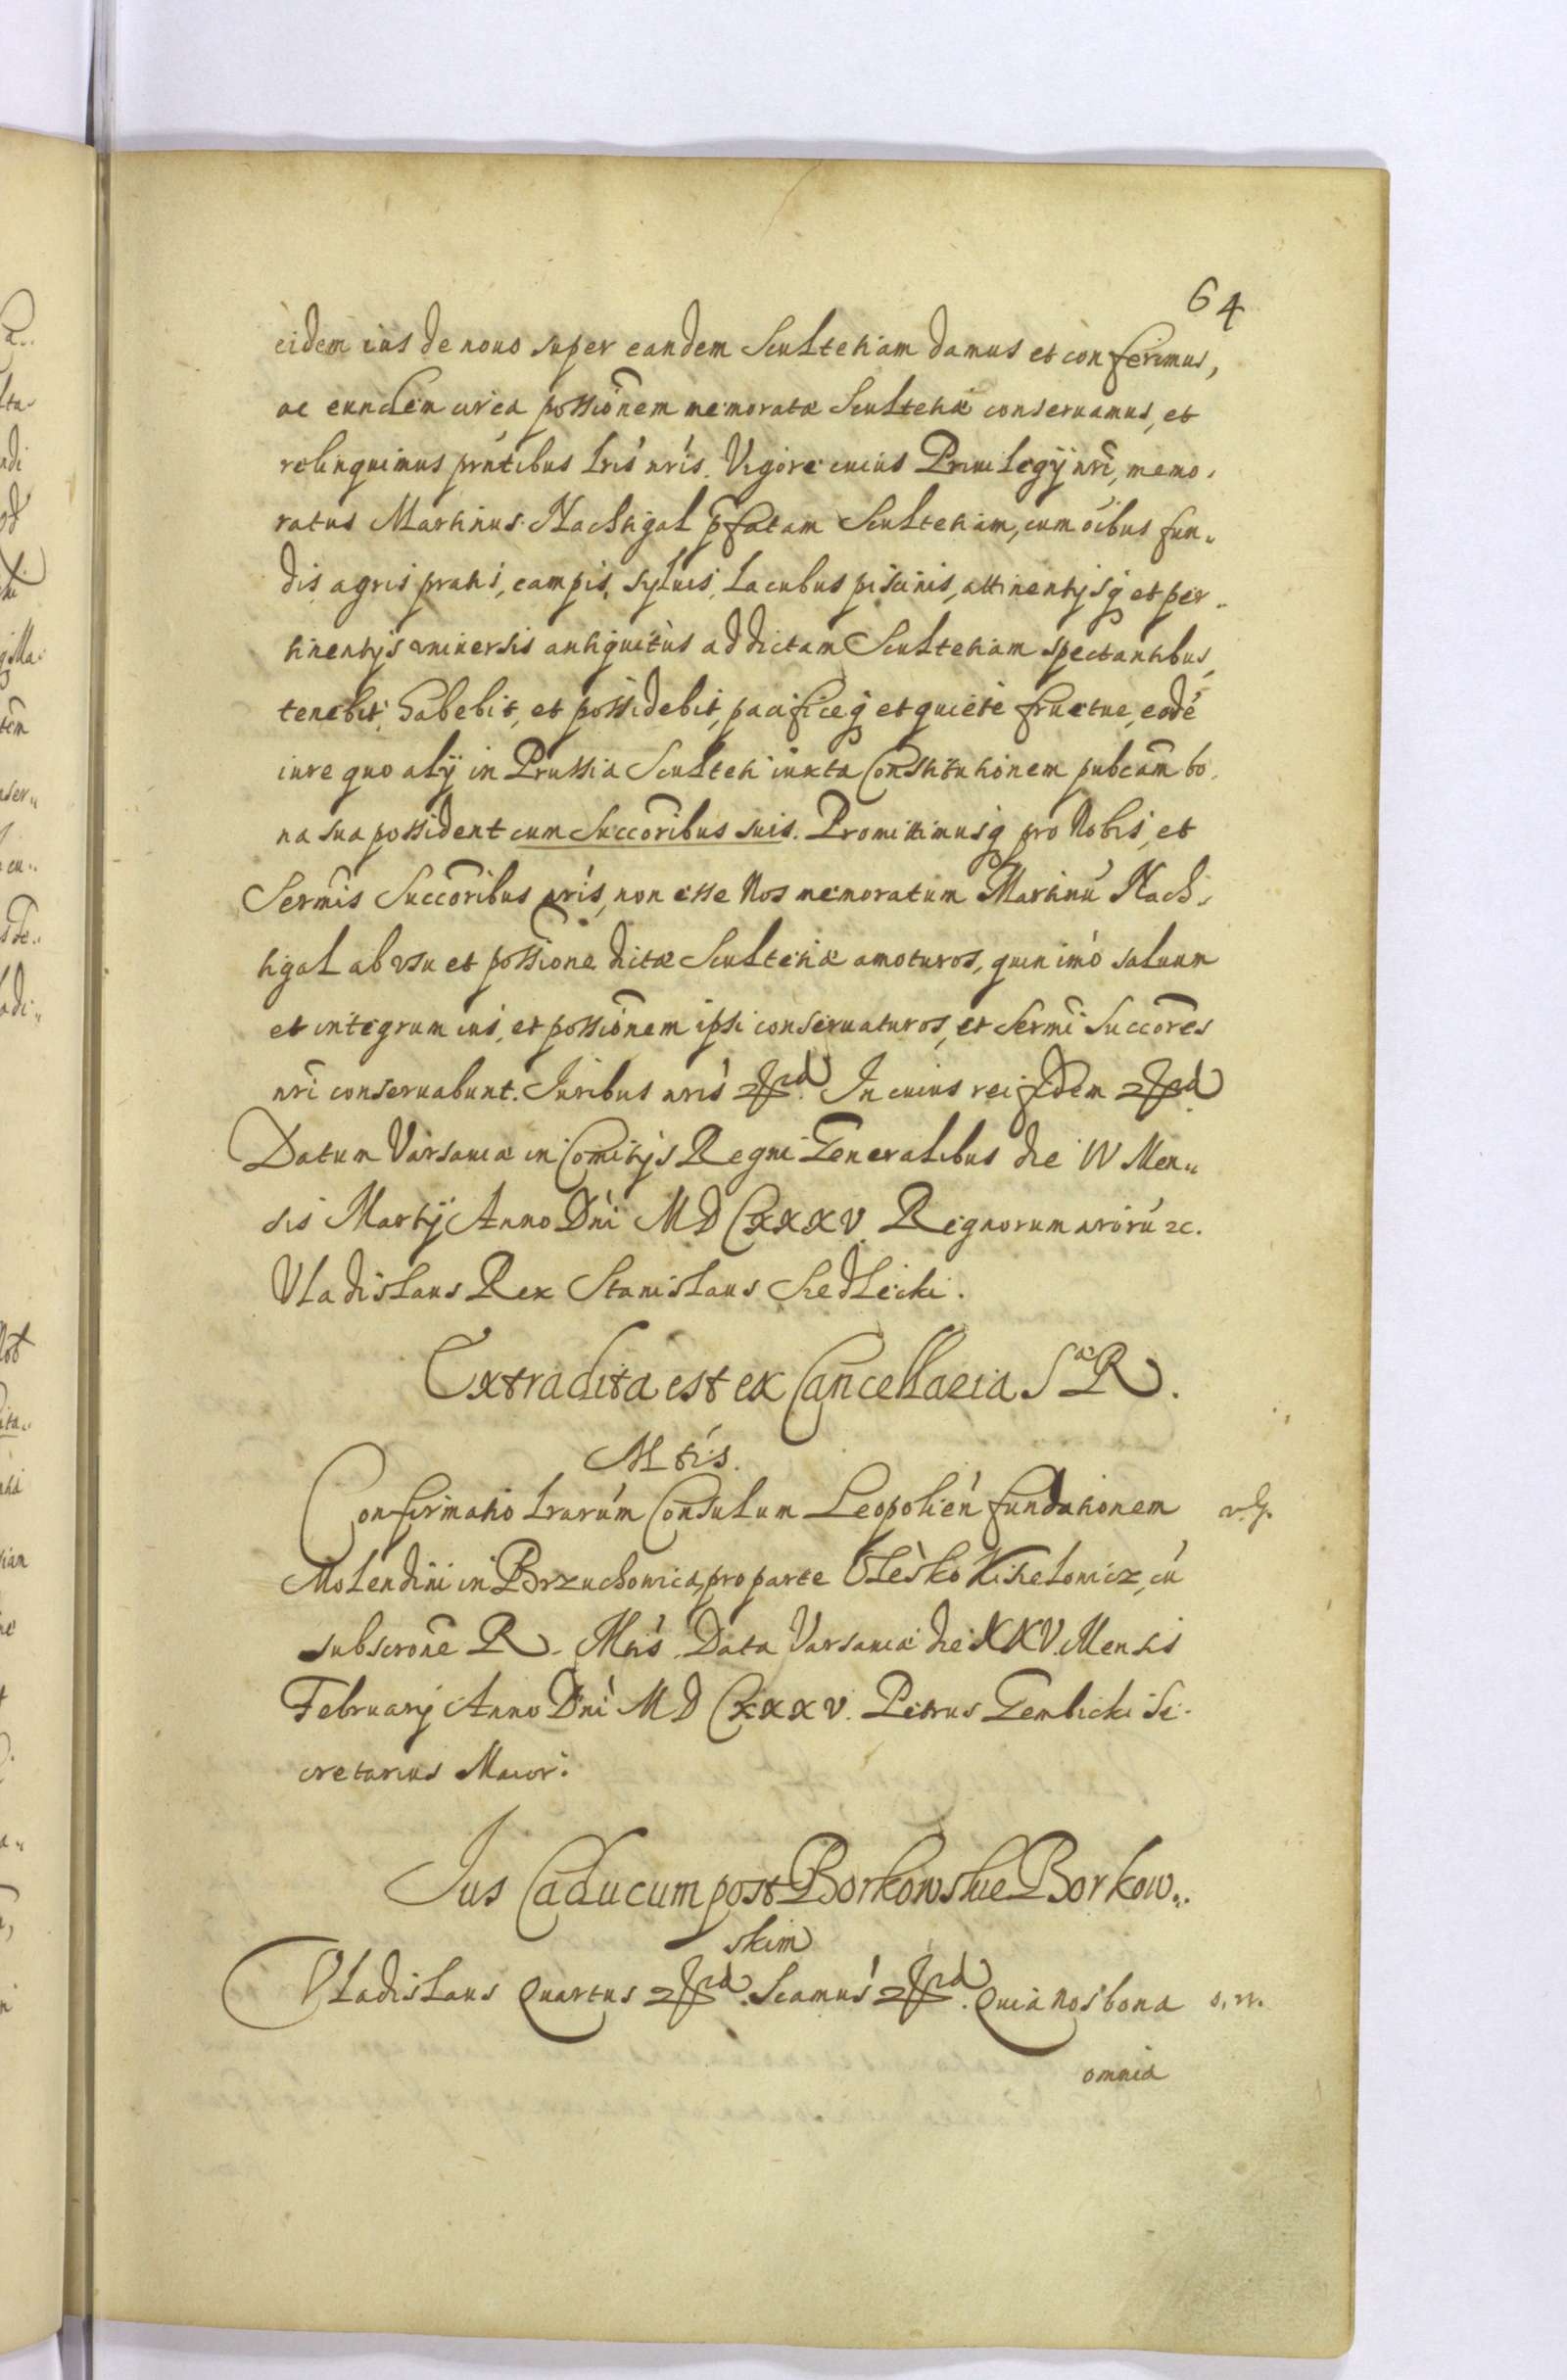 64
eidem ius de nouo super eandem Scultetiam damus et conferimus,
ac eundem circa possionem memoratæ Scultetiæ conseruamus, et
relinquimus pntibus lris nris. Vigore cuius Priuilegÿ nri, memo,
ratus Martinus Nachtigal pfatam Scultetiam, cum oibus fun„
dis agris pratis, campis, syluis, lacubus piscinis, attinentijsq et per„
tinentijs vniuersis antiquitus ad dictam Scultetiam spectantibus,
tenebit, habebit, et possidebit, pacificeq et quiete fructue, eodé
iure quo alÿ in Prussia Sculteti iuxta Constitutionem pubcam bo,
na sua possident cum Succoribus suis. Promittimusq pro Nobis, et
Sermis Succoribus nris, non esse Nos memoratum Martinú Nach,
tigal ab vsu et possione dictæ Scultetiæ amoturos, quin imò saluum
et integrum ius, et possionem ipsi conseruaturos, et Sermi Succores
nri conseruabunt. Juribus nris In cuius rei fidem
Datum Varsauiæ in Comitijs Regni Generalibus die IV Men„
sis Martÿ Anno Dni MDCXXXV. Regnorum nrorú &c.
Vladislaus Rex Stanislaus Siedlecki.
Extradita est ex Cancellaria Sæ R.
Mtis.
Confirmatio lrarum Consulum Leopolien fundationem
Molendini in Brzuchowice, pro parte Olesko Kisielowicz, cú
subscrone R. Mtis. Data Varsauiæ die XXV. Mensis
Februarij Anno Dni MDCXXXV. Petrus Gembicki Se„
cretarius Maior.
Jus Caducum post Borkowskie Borkow„
skim
Vladislaus Quartus Scamus Quia Nos bona
omnia